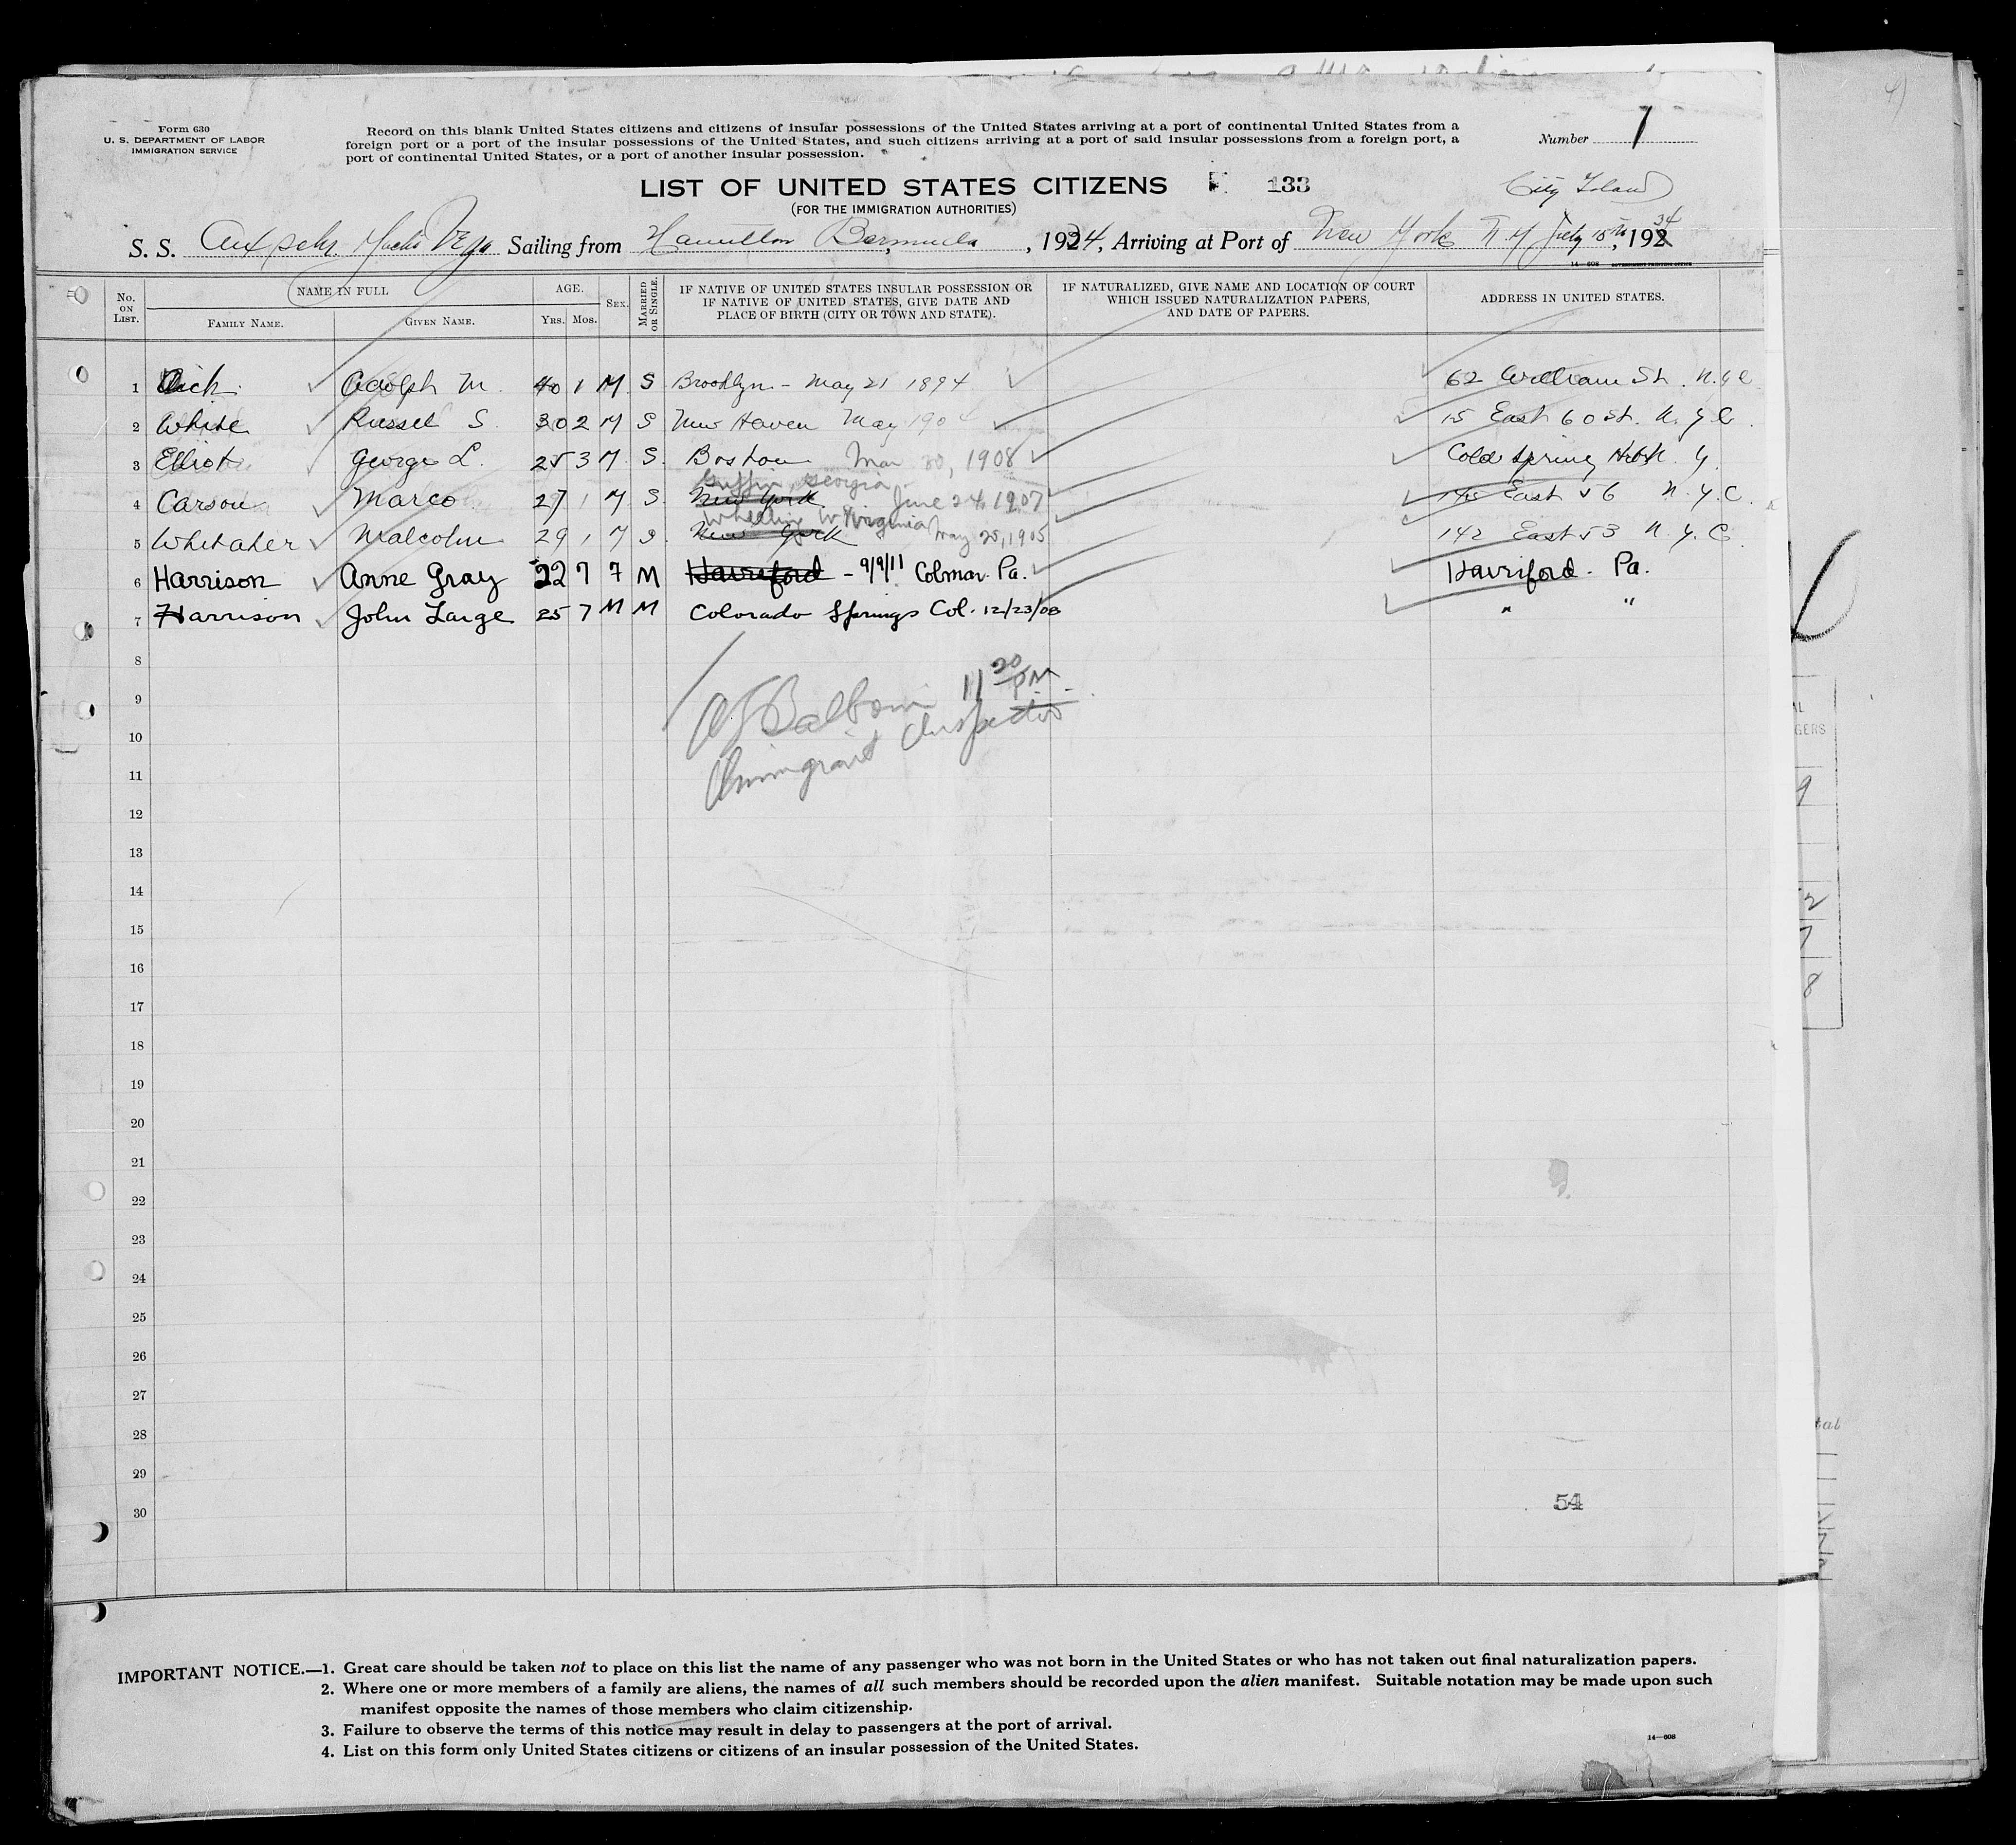 4)
Form 630
U. S. DEPARTMENT OF LABOR
IMMIGRATION SERVICE
Record on this blank United States citizens and citizens of insular possessions of the United States arriving at a port of continental United States from a
foreign port or a port of the insular possessions of the United States, and such citizens arriving at a port of said insular possessions from a foreign port, a
port of continental United States, or a port of another insular possession.
Number 1
LIST OF UNITED STATES CITIZENS 133
City Island
(FOR THE IMMIGRATION AUTHORITIES)
S. S. Aux schr. Yacht Vega Sailing from Hamilton Bermuda, 1934, Arriving at Port of New York N. Y July 15th, 1934
14—608 GOVERNMENT PRINTING OFFICE
No. ON LIST. NAME IN FULL AGE. SEX. MARRIED OR SINGLE. IF NATIVE OF UNITED STATES INSULAR POSSESSION OR IF NATIVE OF UNITED STATES, GIVE DATE AND PLACE OF BIRTH (CITY OR TOWN AND STATE). IF NATURALIZED, GIVE NAME AND LOCATION OF COURT WHICH ISSUED NATURALIZATION PAPERS, AND DATE OF PAPERS. ADDRESS IN UNITED STATES.
FAMILY NAME. GIVEN NAME. Yrs. Mos.
1 Dick Adolph M. 40 1 M S Brooklyn - May 21 1894 62 William St. N.Y.C.
2 White Russel S. 30 2 M S New Haven May 1904 15 East 60 St. N.Y.C.
3 Elliot George L. 25 3 M S. Boston Mar 30, 1908 Cold Spring Hrbr N. Y.
Griffin, Georgia
4 Carson Marco 27 1 M S. New York June 24, 1907 East 56 N.Y.C.
Wheeling W Virginia
5 Whitaker Malcolm 29 1 M S. New York May 25, 1905 142 East 53 N.Y.C.
6 Harrison Anne Gray 22 7 F M Haverford - 9/9/11 Colmar. Pa. Haverford. Pa.
7 Harrison John Large 25 7 M M Colorado Springs Col. 12/23/08 " "
8
11 20 PM
9
Baldwin
10
Immigrant Inspector
11
12
13
14
15
16
17
18
19
20
21
22
23
24
25
26
27
28
29
30
54
IMPORTANT NOTICE.—1. Great care should be taken not to place on this list the name of any passenger who was not born in the United States or who has not taken out final naturalization papers.
2. Where one or more members of a family are aliens, the names of all such members should be recorded upon the alien manifest. Suitable notation may be made upon such
manifest opposite the names of those members who claim citizenship.
3. Failure to observe the terms of this notice may result in delay to passengers at the port of arrival.
4. List on this form only United States citizens or citizens of an insular possession of the United States.
14—608